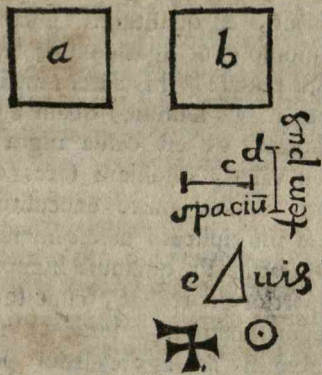 a b
c d
spaciū tempus
e uis